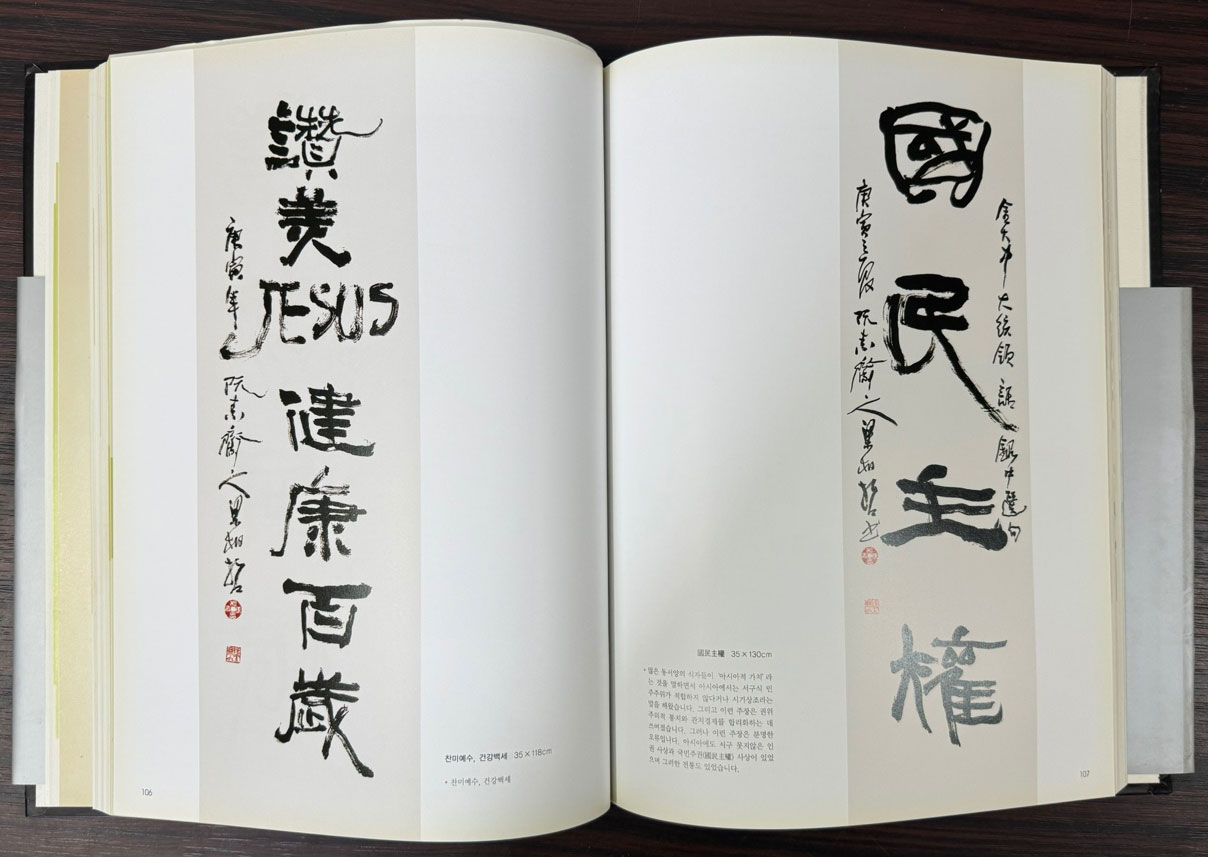 讚美JESUS健康百歲
庚寅年
찬미예수, 건강백세 35×118cm
* 찬미예수, 건강백세
106
國民主權
金大中 大統領 語錄中 選句
庚寅之
國民主權 35×130cm
* 많은 동서양의 식자들이 '아시아적 가치'라
는 것을 말하면서 아시아에서는 서구식 민
주주의가 적합하지 않다거나 시기상조라는
말을 해왔습니다. 그리고 이런 주장은 권위
주의적 통치와 관치경제를 합리화하는 데
쓰여졌습니다. 그러나 이런 주장은 분명한
오류입니다. 아시아에도 서구 못지않은 인
권 사상과 국민주권(國民主權) 사상이 있었
으며 그러한 전통도 있었습니다.
107